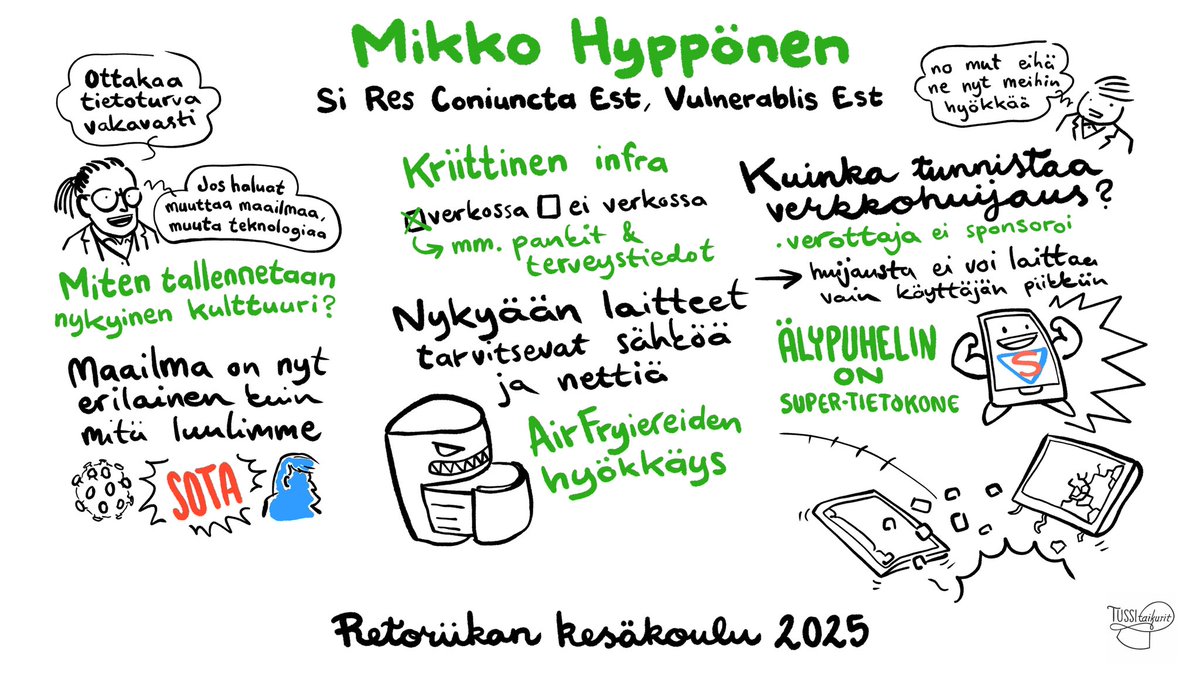 Mikko Hyppönen
Si Res Coniuncta Est, Vulnerablis Est
Ottakaa
tietoturva
vakavasti
Jos haluat
muuttaa maailmaa,
muuta teknologiaa
Miten tallennetaan
nykyinen kulttuuri?
Maailma on nyt
erilainen kuin
mitä luulimme
SOTA
Kriittinen infra
verkossa ei verkossa
mm. pankit &
terveystiedot
Nykyään laitteet
tarvitsevat sähköä
ja nettiä
AirFryiereiden
hyökkäys
no mut eihä
ne nyt meihin
hyökkää
Kuinka tunnistaa
verkkohuijaus?
. verottaja ei sponsoroi
huijausta ei voi laittaa
vain käyttäjän piikkiin
ÄLYPUHELIN
ON
SUPER-TIETOKONE
S
Retoriikan kesäkoulu 2025
TUSSItaikurit